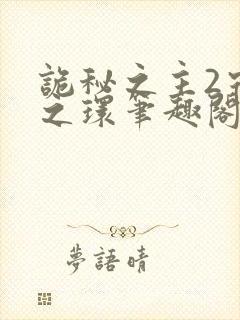 詭秘之主2
之環筆趣閣
夢語晴